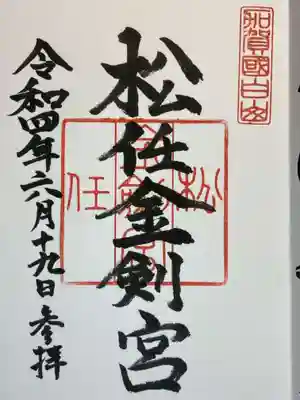 加賀國白山
松任金剣宮
松任金剣宮
令和四年六月十九日参拝